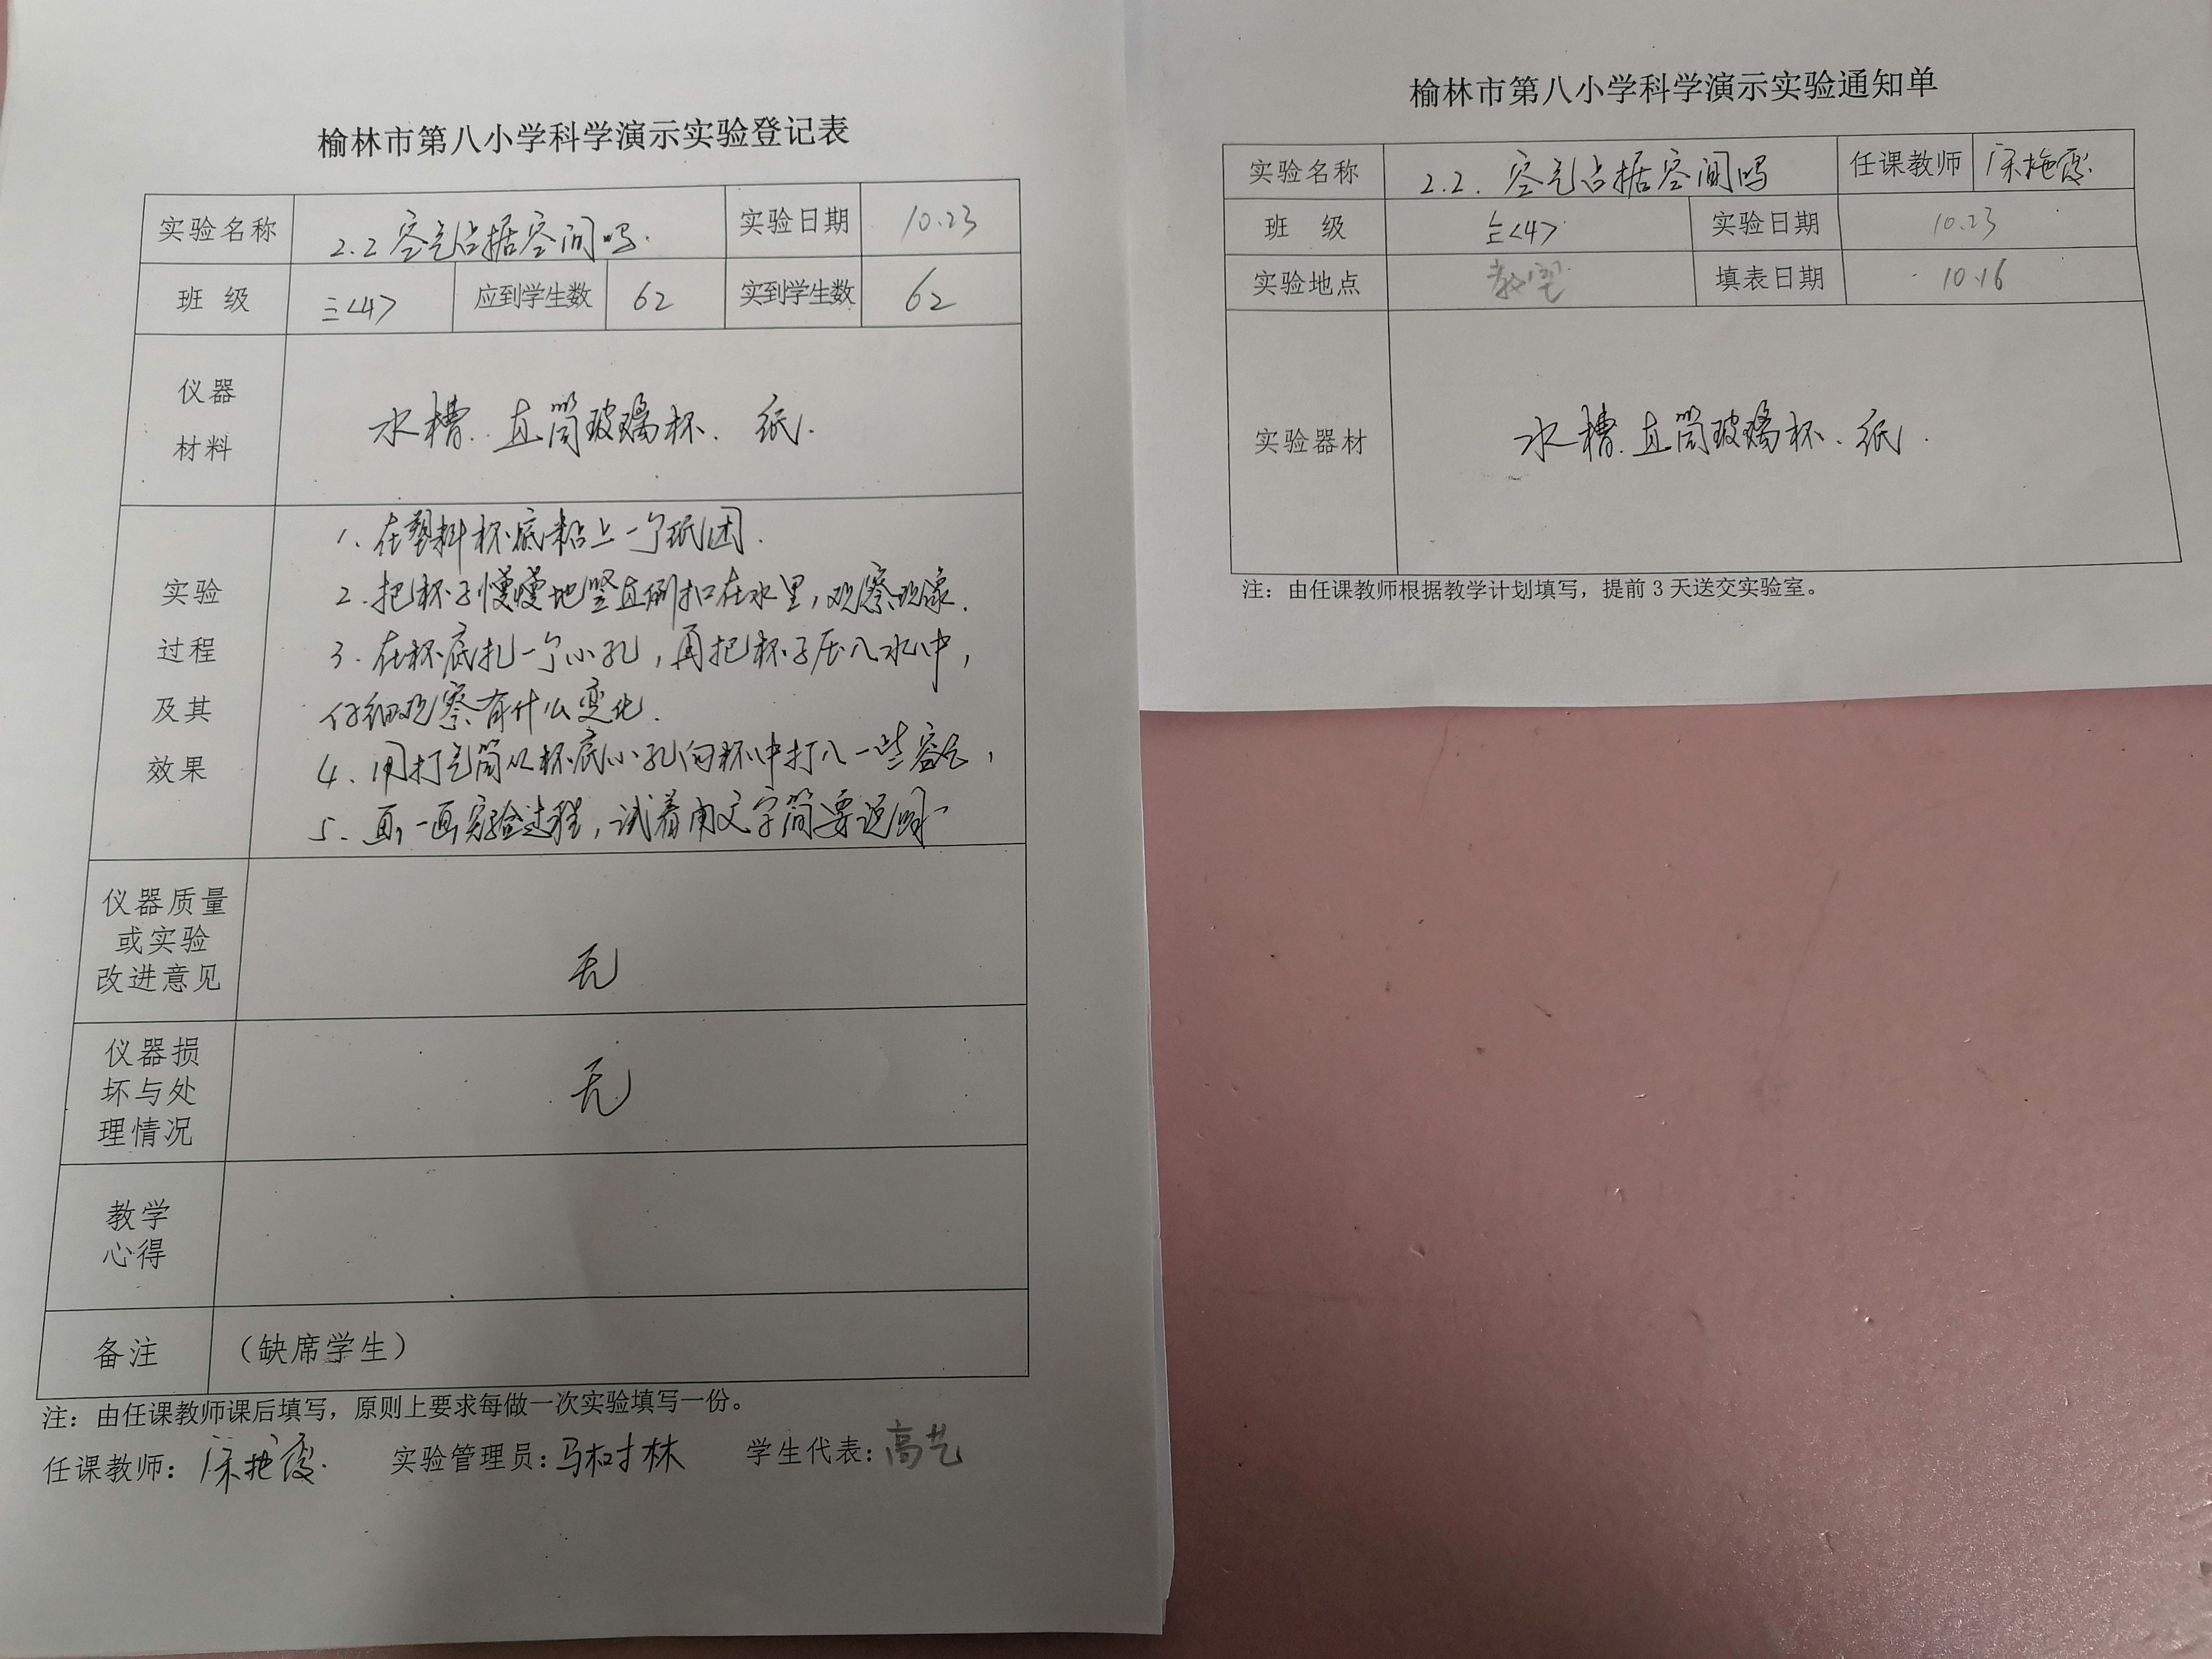 榆林市第八小学科学演示实验登记表
实验名称 2.2空气占据空间吗. 实验日期 10.23
班 级 三<4> 应到学生数 62 实到学生数 62
仪器
材料
水槽. 直筒玻璃杯. 纸.
实验
过程
及其
效果
1. 在塑料杯底粘上一个纸团.
2. 把杯子慢慢地竖直倒扣在水里,观察现象.
3. 在杯底扎一个小孔,再把杯子压入水中,
仔细观察有什么变化.
4. 用打气筒从杯底小孔向杯中打入一些空气,
5. 画一画实验过程,试着用文字简要说明
仪器质量
或实验
改进意见
无
仪器损
坏与处
理情况
无
教学
心得
备注 (缺席学生)
注:由任课教师课后填写,原则上要求每做一次实验填写一份。
任课教师: 实验管理员:马树林 学生代表:高艺
榆林市第八小学科学演示实验通知单
实验名称 2.2. 空气占据空间吗 任课教师
班 级 三<4> 实验日期 10.23
实验地点 教室 填表日期 10.16
实验器材 水槽. 直筒玻璃杯. 纸.
注:由任课教师根据教学计划填写,提前3天送交实验室。